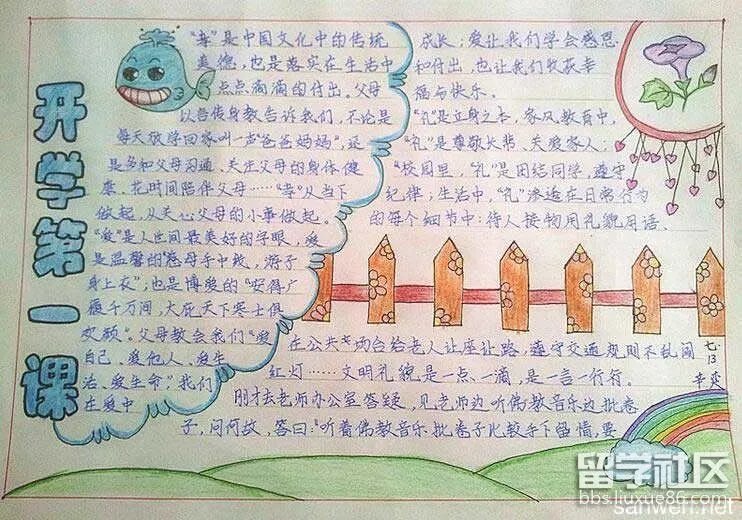 开学第一课
"孝"是中国文化中的传统
美德，也是落实在生活中
点点滴滴的付出。父母
以言传身教告诉我们，不论是
每天放学回家叫一声"爸爸妈妈"，还
是多和父母沟通、关注父母的身体健
康、花时间陪伴父母……"孝"从当下
做起，从关心父母的小事做起。
"爱"是人世间最美好的字眼，爱
是温馨的"慈母手中线，游子
身上衣"，也是博爱的"安得广
厦千万间，大庇天下寒士俱
欢颜"。父母教会我们"爱
自己、爱他人、爱生
活、爱生命"我们
在爱中
成长；爱让我们学会感恩
和付出，也让我们收获幸
福与快乐。
"礼"是立身之本，家风教育中，
"礼"是尊敬长辈、关爱家人；
"校园里，"礼"是团结同学，遵守
纪律；生活中，"礼"渗透在日常行为
的每个细节中：待人接物用礼貌用语、
在公共场合给老人让座让路，遵守交通规则不乱闯
红灯……文明礼貌是一点一滴，是一言一行。
刚才去老师办公室答疑，见老师边听佛教音乐边批卷
子，问何故，答曰："听着佛教音乐批卷子比较手下留情，要
七.13
留学社区
bbs.liuxue86.com
sanwen.net